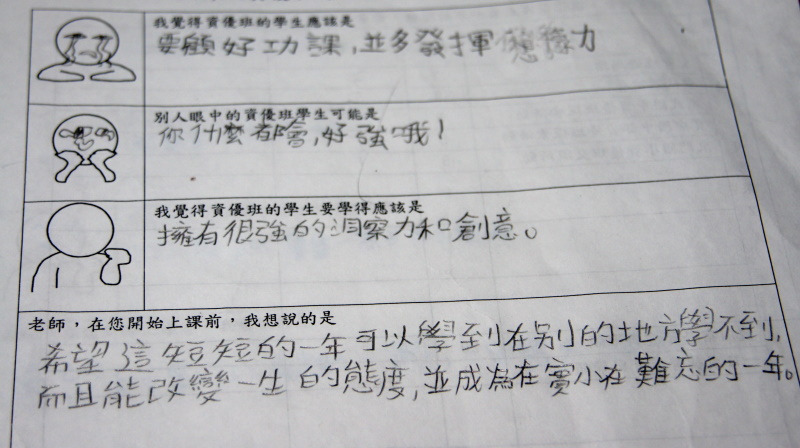 我覺得資優班的學生應該是
要顧好功課,並多發揮 力
別人眼中的資優班學生可能是
你什麼都會,好強哦!
我覺得資優班的學生要學得應該是
擁有很強的洞察力和創意。
老師,在您開始上課前,我想說的是
希望這短短的一年可以學到在別的地方學不到,
而且能改變一生的態度,並成為在實小在難忘的一年。